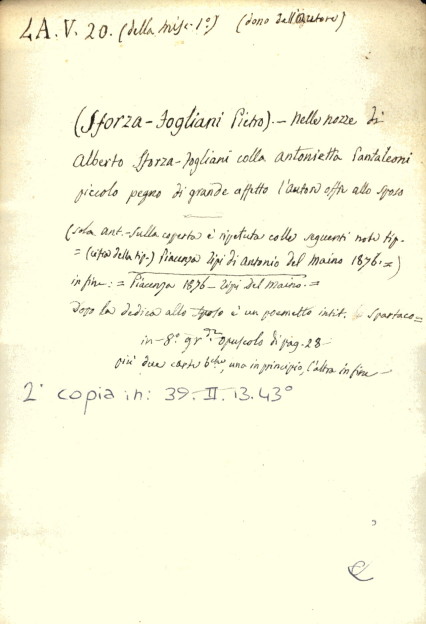 4A.V. 20. (della Misc. 1º) (dono dell'Autore)
(Sforza-Fogliani Pietro).- Nelle nozze di
Alberto Sforza-Fogliani colla Antonietta Pantaleoni
piccolo pegno di grande affetto l'autore offre allo sposo
(sola ant.-Sulla coperta è ripetuta colle seguenti note tip.
= (cifra della tip.) Piacenza Tipi di Antonio del Maino 1876.=)
in fine: = Piacenza 1876 - Tipi Del Maino.=
Dopo la dedica allo sposo è un poemetto intit. Lo Spartaco=
in-8º gr. opuscolo di pag. 28-
più due carte, una in principio, l'altra in fine -
2ª copia in: 39.II.13.43º